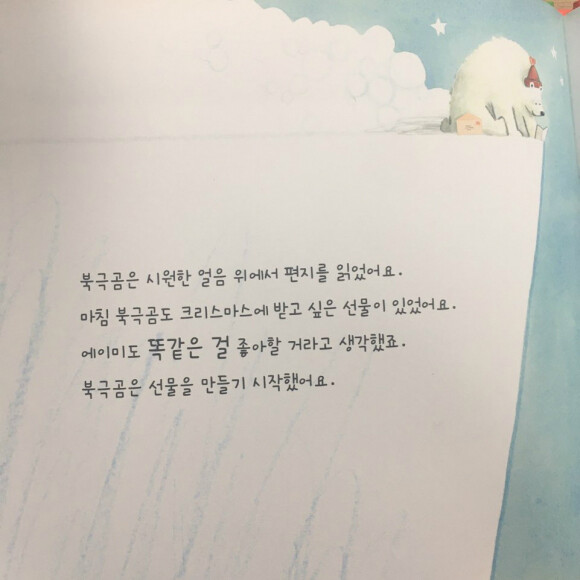 북극곰은 시원한 얼음 위에서 편지를 읽었어요.
마침 북극곰도 크리스마스에 받고 싶은 선물이 있었어요.
에이미도 똑같은 걸 좋아할 거라고 생각했죠.
북극곰은 선물을 만들기 시작했어요.